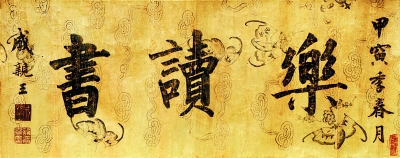 甲寅季春月
樂讀書
成親王